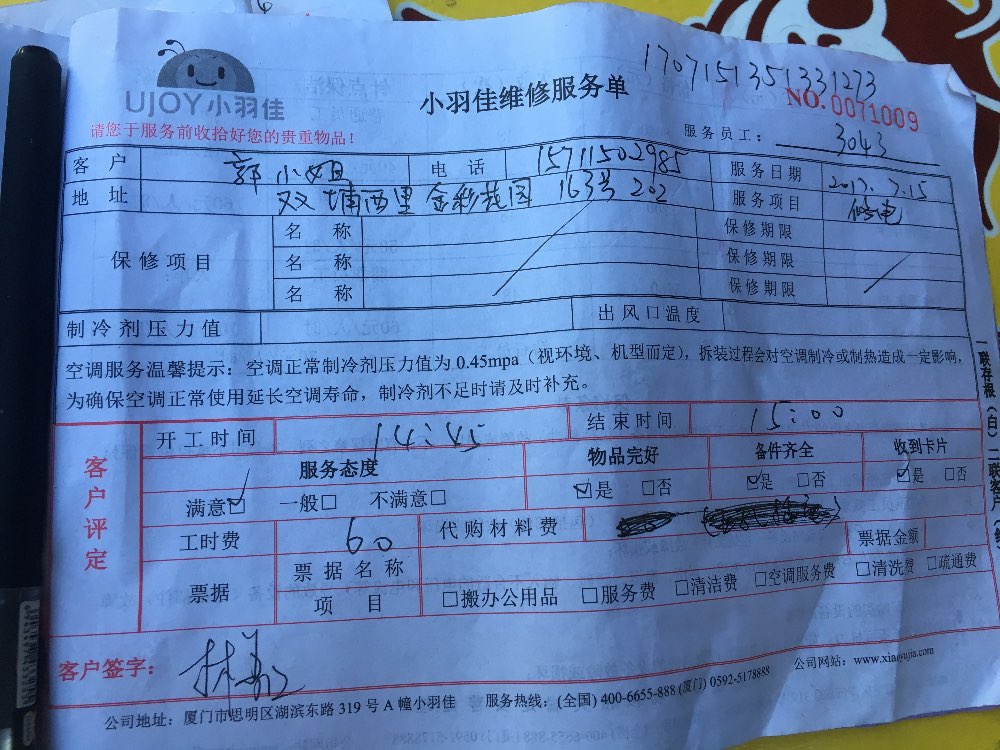 1707151351331273
UJOY小羽佳
小羽佳维修服务单
NO.0071009
请您于服务前收拾好您的贵重物品!
服务员工: 3043
客户 郭小姐 电话 15711502985 服务日期 2017.7.15
地址 双埔西里金彩花园 163号 202 服务项目 修电
保修项目 名称 保修期限
名称 保修期限
名称 保修期限
制冷剂压力值 出风口温度
空调服务温馨提示:空调正常制冷剂压力值为 0.45mpa(视环境、机型而定),拆装过程会对空调制冷或制热造成一定影响,
为确保空调正常使用延长空调寿命,制冷剂不足时请及时补充。
客户评定
开工时间 14:45 结束时间 15:00
服务态度 物品完好 备件齐全 收到卡片
满意☑ 一般□ 不满意□ ☑是 □否 ☑是 □否 ☑是 □否
工时费 60 代购材料费 票据金额
票据 票据名称
项目 □搬办公用品 □服务费 □清洁费 □空调服务费 □清洗费 □疏通费
客户签字:
公司地址:厦门市思明区湖滨东路 319 号 A 幢小羽佳 服务热线:(全国) 400-6655-888 (厦门) 0592-5178888 公司网站:www.xiaoyujia.com
一联存根(白)二联客户